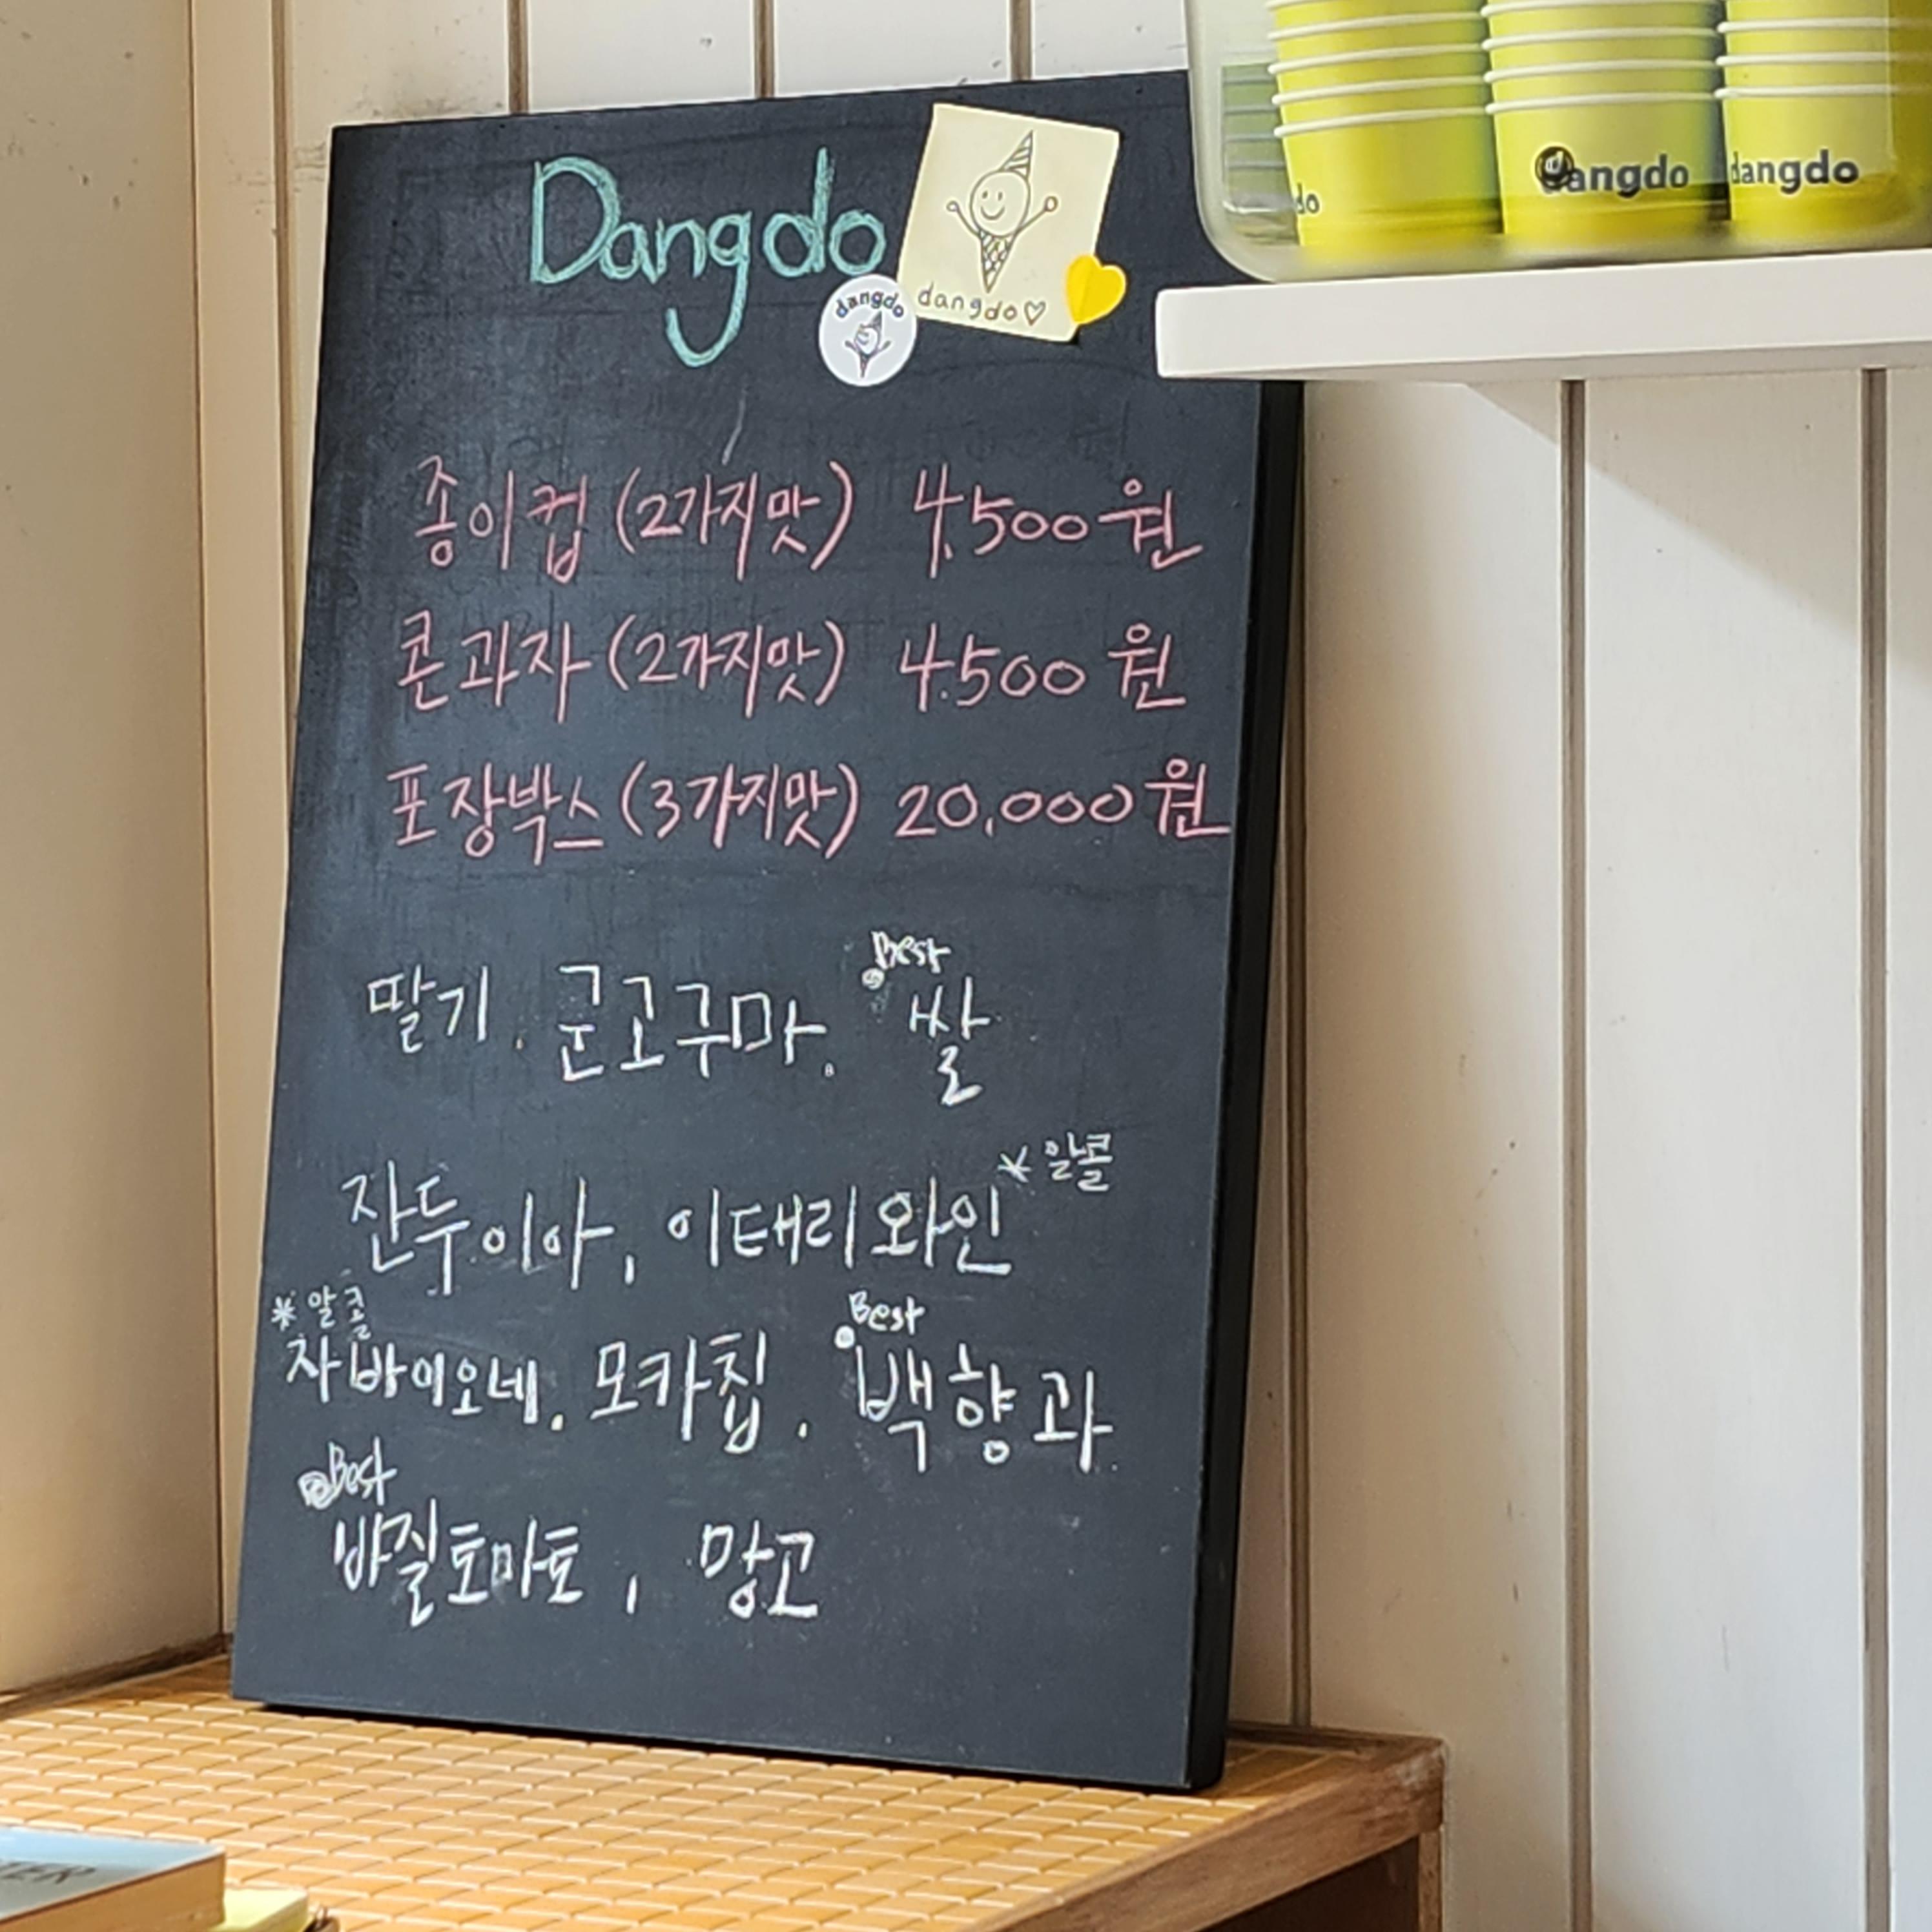 Dangdo
dangdo♡
dangdo
do
dangdo
dangdo
종이컵 (2가지맛) 4,500원
콘과자 (2가지맛) 4,500원
포장박스 (3가지맛) 20,000원
Best
딸기, 군고구마, 쌀
*알콜
잔두이아, 이태리와인
*알콜
Best
자바이오네, 모카칩, 백향과
Best
바질토마토, 망고